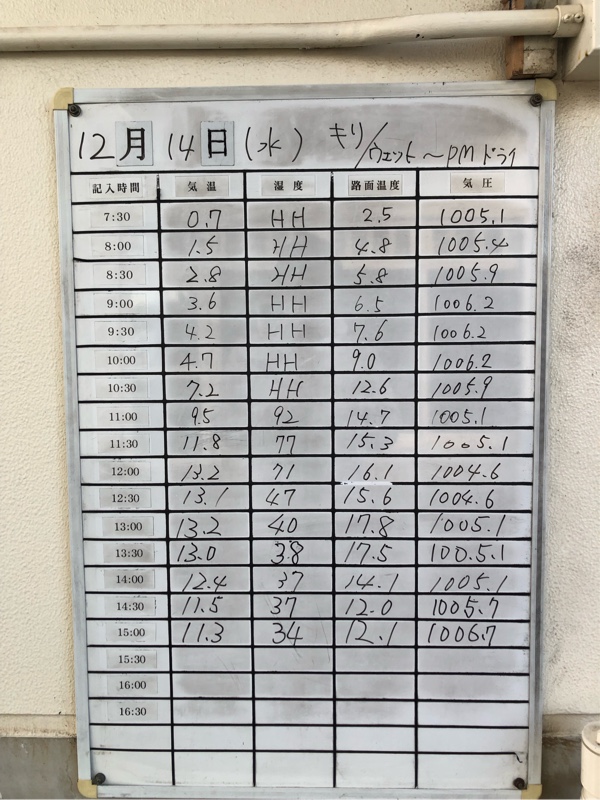 12月14日(水) キリ/ウェット〜PMドライ
記入時間 気温 湿度 路面温度 気圧
7:30 0.7 HH 2.5 1005.1
8:00 1.5 HH 4.8 1005.4
8:30 2.8 HH 5.8 1005.9
9:00 3.6 HH 6.5 1006.2
9:30 4.2 HH 7.6 1006.2
10:00 4.7 HH 9.0 1006.2
10:30 7.2 HH 12.6 1005.9
11:00 9.5 92 14.7 1005.1
11:30 11.8 77 15.3 1005.1
12:00 13.2 71 16.1 1004.6
12:30 13.1 47 15.6 1004.6
13:00 13.2 40 17.8 1005.1
13:30 13.0 38 17.5 100.5.1
14:00 12.4 37 14.1 1005.1
14:30 11.5 37 12.0 1005.7
15:00 11.3 34 12.1 1006.7
15:30
16:00
16:30